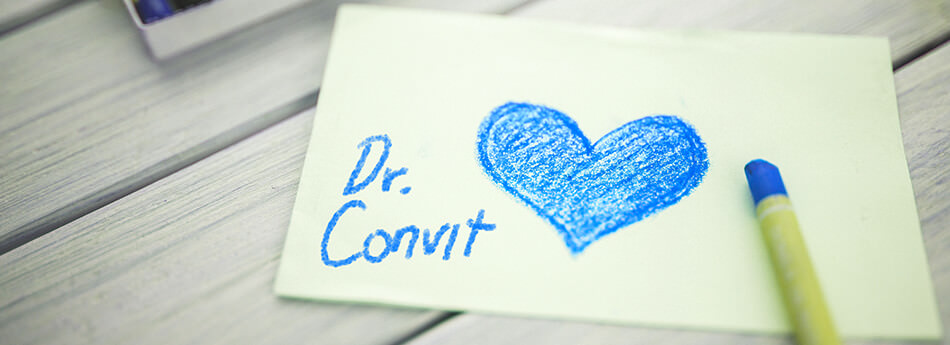 Dr.
Convit